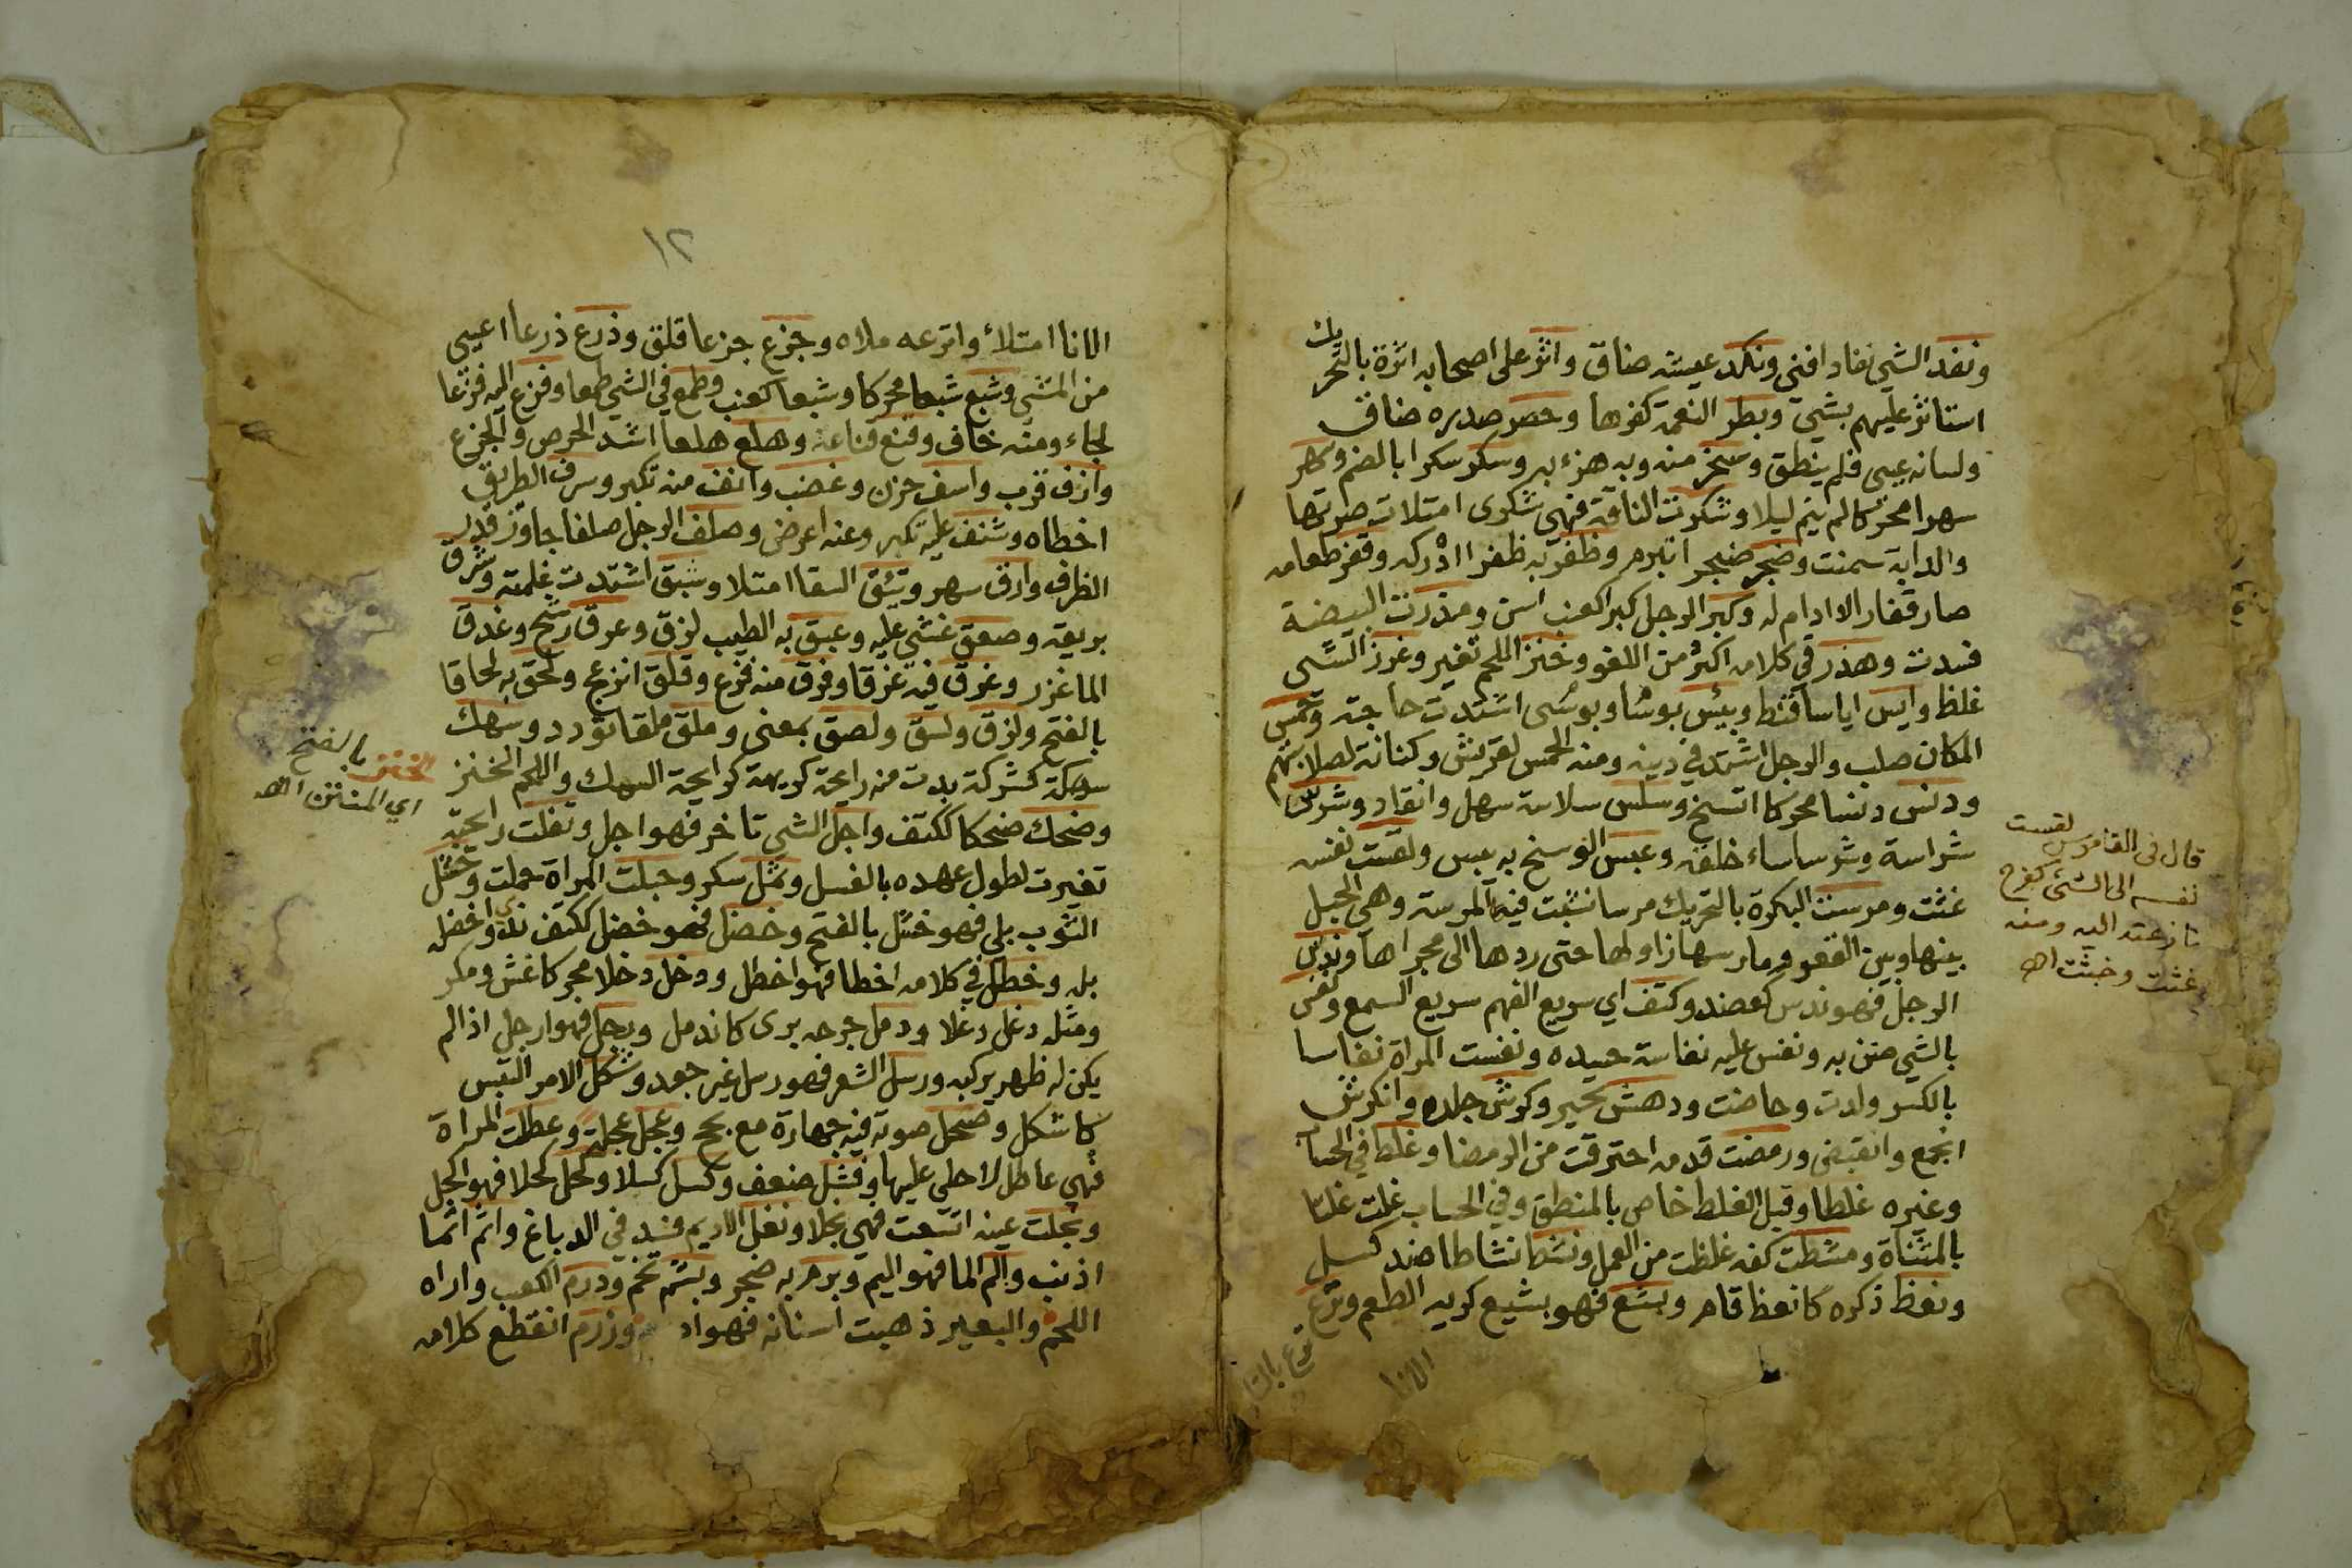 ونفد الشي نفادا فنى ونكد عيشه ضاق واثر على اصحابه اثرة بالتحريك
استاثر عليهم بشيء وبطر النعمة كفرها وحصر صدره ضاق
ولسانه عيى فلم ينطق وسخر منه وبه هزء به وسكر سكرا بالضم وسهر
سهرا محركا لم ينم ليلا وشكرت الناقة فهى شكرى امتلات ضرعها
والدابة سمنت وضجر ضجرا تبرم وظفر به ظفرا ادركه وقفر طعامه
صار قفارا لا ادام له وكبر الرجل كبرا كعنب اسن ومذرت البيضة
فسدت وهذر في كلامه اكثر من اللغو وخنز اللحم تغير وغرز الشى
غلظ وايس اياسا قنط وبيئس بوسا وبوسى اشتدت حاجته وحمس
المكان صلب والرجل اشتد في دينه ومنه الحمس لقريش وكنانة لصلابتهم
ودنس دنسا محركا اتسخ وسلس سلاسة سهل وانقاد وشرس
شراسة وشرسا ساء خلقه وعبس الوسخ به يبس ولقست نفسه
غثت ومرست البكرة بالتحريك مرسا نشبت فيه المرسة وهى الحبل
بينها وبين القعو ومارسها زاولها حتى ردها الى مجراها وندس
الرجل فهو ندس كعضد وكتف اي سريع الفهم سريع السمع ونفس
بالشي ضنن به ونفس عليه نفاسة حسده ونفست المراة نفاسا
بالكسر ولدت وحاضت ودهش تحير وكرش جلده وانكرش
اجمع وانقبض ورمضت قدمه احترقت من الرمضا وغلط في الحساب
وغيره غلطا وقيل الغلط خاص بالمنطق وفي الحساب غلت غلتا
بالمثناة ومشظت كفه غلظت من العمل ونشط نشاطا ضد كسل
ونعظ ذكره كانعظ قام وبشع فهو بشيع كريه الطعم وترع
الانا
قال في القاموس لقست
نفسه الى الشئ كفرح
نازعته اليه ومنه
غثت وخبثت اهـ
١٢
الانا امتلأ واترعه ملاه وجزع جزعا قلق وذرع ذرعا اعيى
من المشي وشبع شبعا محركا وشبعا كعنب وطمع في الشي طمعا وفزع اليه فزعا
لجاء ومنه خاف وقنع قناعة وهلع هلعا اشد الحرص والجزع
وازف قرب واسف حزن وغضب وانف منه تكبر وسرف الطريق
اخطاه وشنف عليه تكبر وعنه اعرض وصلف الرجل صلفا جاوز قدر
الظرف وارق سهر وتئق السقا امتلا وشبق اشتدت غلمته وشرق
بريقه وصعق غشي عليه وعبق به الطيب لزق وعرق رشح وغدق
الما غزر وغرق فيه غرقا وفرق منه فزع وقلق انزعج ولحق به لحاقا
بالفتح ولزق ولسق ولصق بمعنى وملق ملقا تودد وسهك
سهكة كشركة بدت منه رايحة كريهة كرايحة السهك واللحم الخنز
وضحك ضحكا ككتف واجل الشي تاخر فهو اجل وتفلت رايحته
تغيرت لطول عهده بالغسل وثمل سكر وحبلت المراة حملت وخثل
الثوب بلى فهو خثل بالفتح وخضل فهو خضل ككتف ندى واخضله
بله وخطل في كلامه اخطا فهو اخطل ودخل دخلا محركا غش ومكر
ومثله دغل دغلا ودمل جرحه برى كاندمل ورجل فهو ارجل اذا لم
يكن له ظهر يركبه ورسل الشعر فهو رسل غير جعد وشكل الامر التبس
كاشكل وصحل صوته فيه جهارة مع بحح وعجل عجلة وعطلت المراة
فهي عاطل لا حلي عليها وفشل ضعف وكسل كسلا وكحل كحلا فهو اكحل
ونجلت عينه اتسعت فهي نجلا ونغل الاديم فسد في الدباغ واثم اثما
اذنب والم الما فهو اليم وبرم به ضجر وبشم تخم ودرم الكعب واراه
اللحم والبعير ذهبت اسنانه فهو اد وزرم انقطع كلامه
الخنز بالفتح
اي المنتن اهـ